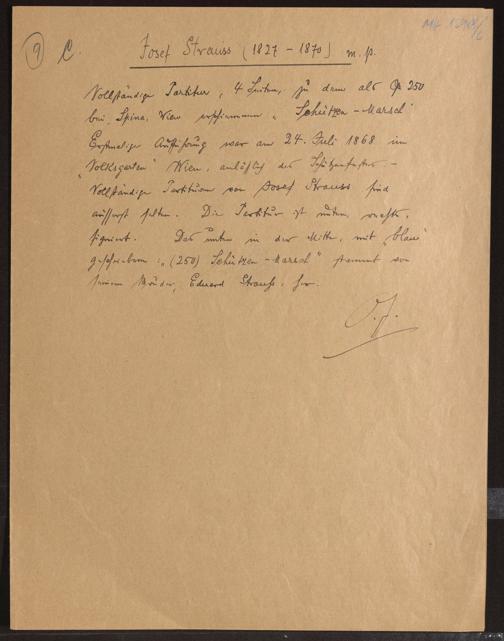 9 C. Josef Strauss (1827 – 1870) m. p.
Vollständige Partitur, 4 Seiten, zu dem als Op 250
bei Spina, Wien erschienenen „Schützen-Marsch“
Erstmalige Aufführung war am 24. Juli 1868 im
„Volksgarten“ Wien, anläßlich des Schützenfestes. –
Vollständige Partituren von Josef Strauss sind
äusserst selten. Die Partitur ist unten, rechts,
signiert. Das unten in der Mitte, mit „blau“
geschriebene: „(250) Schützen-Marsch“ stammt von
seinem Bruder, Eduard Strauss, her.